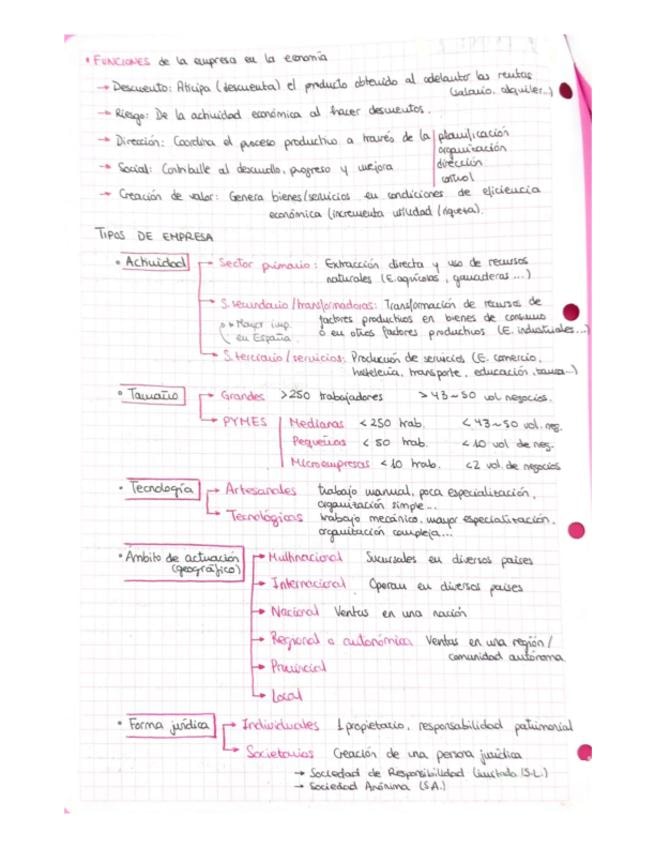 • FUNCIONES de la empresa en la economía
→ Descuento: Aticipa (descuenta) el producto obtenido al adelantar las rentas
(salario, alquiler...)
→ Riesgo: De la actividad económica al hacer descuentos.
→ Dirección: Coordina el proceso productivo a través de la planificación
organización
→ Social: Contribulle al desarrollo, progreso y mejora dirección
control
→ Creación de valor: Genera bienes/servicios en condiciones de eficiencia
económica (incrementa utilidad/riqueza).
TIPOS DE EMPRESA
• Actividad → Sector primario: Extracción directa y uso de recursos
naturales (E. agrícolas, ganaderas...)
→ S. secundario/transformadoras: Transformación de recursos de
factores productivos en bienes de consumo
Mayor imp. o en otros factores productivos (E. industriales...)
en España
→ S. terciario/servicios: Producción de servicios (E. comercio,
hostelería, transporte, educación, banca...)
• Tamaño → Grandes >250 trabajadores >43~50 vol negocios.
→ PYMES Medianas <250 trab. <43~50 vol. neg.
Pequeñas <50 trab. <10 vol de neg.
Microempresas <10 trab. <2 vol. de negocios
• Tecnología → Artesanales trabajo manual, poca especialización,
organización simple...
→ Tecnológicas trabajo mecánico, mayor especialización,
organización compleja...
• Ámbito de actuación → Multinacional Sucursales en diversos países
(geográfico)
→ Internacional Operan en diversos países
→ Nacional Ventas en una nación
→ Regional o autonómica Ventas en una región/
comunidad autónoma
→ Provincial
→ Local
• Forma jurídica → Individuales 1 propietario, responsabilidad patrimonial
→ Societarios Creación de una persona jurídica
→ Sociedad de Responsabilidad Limitada (S.L.)
→ Sociedad Anónima (S.A.)